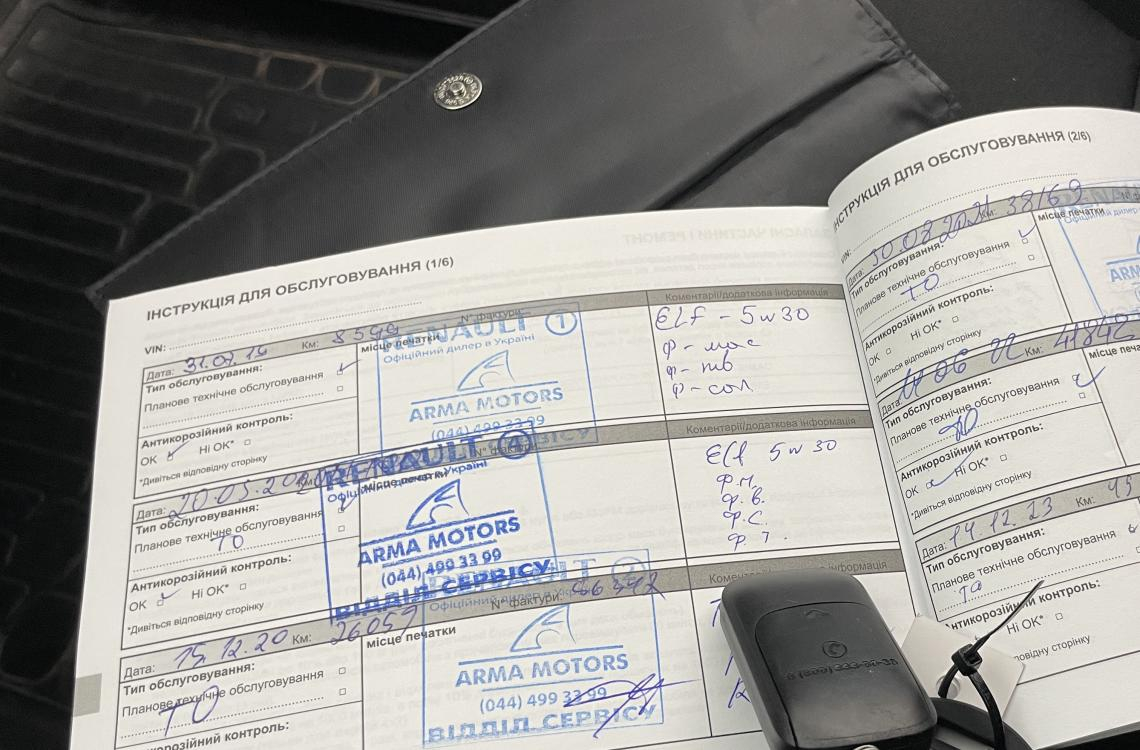 ІНСТРУКЦІЯ ДЛЯ ОБСЛУГОВУВАННЯ (1/6)
VIN:
Дата: 31.07.19 Км: 8599 N° фактури:
Коментарі/додаткова інформація
Тип обслуговування:
місце печатки
Планове технічне обслуговування
Антикорозійний контроль:
OK Ні OK*
*Дивіться відповідну сторінку
RENAULT 1
Офіційний дилер в Україні
ARMA MOTORS
(044) 499 33 99
ELF - 5w30
ф - мас
ф - пов
ф - сал
Дата: 20.05.20
Коментарі/додаткова інформація
Тип обслуговування:
Місце печатки
Планове технічне обслуговування
ТО
Антикорозійний контроль:
OK Ні OK*
*Дивіться відповідну сторінку
RENAULT 4
Офіційний дилер в Україні
ARMA MOTORS
(044) 499 33 99
ВІДДІЛ СЕРВІСУ
Elf 5w30
Ф.М.
Ф.В.
Ф.С.
Ф.Т.
Дата: 15.12.20 Км: 26059 N° фактури:
Тип обслуговування:
місце печатки
Планове технічне обслуговування
ТО
RENAULT
Офіційний дилер в Україні
ARMA MOTORS
(044) 499 33 99
ВІДДІЛ СЕРВІСУ
ІНСТРУКЦІЯ ДЛЯ ОБСЛУГОВУВАННЯ (2/6)
VIN:
Дата: 30.08.2021 Км: 38169
Тип обслуговування:
місце печатки
Планове технічне обслуговування
ТО
Антикорозійний контроль:
OK Ні OK*
*Дивіться відповідну сторінку
Дата: 11 06 22 Км: 41842
Тип обслуговування:
Планове технічне обслуговування
ТО
Антикорозійний контроль:
OK Ні OK*
*Дивіться відповідну сторінку
Дата: 14.12.23 Км: 45
Тип обслуговування:
Планове технічне обслуговування
ТО
контроль:
Ні OK*
відповідну сторінку